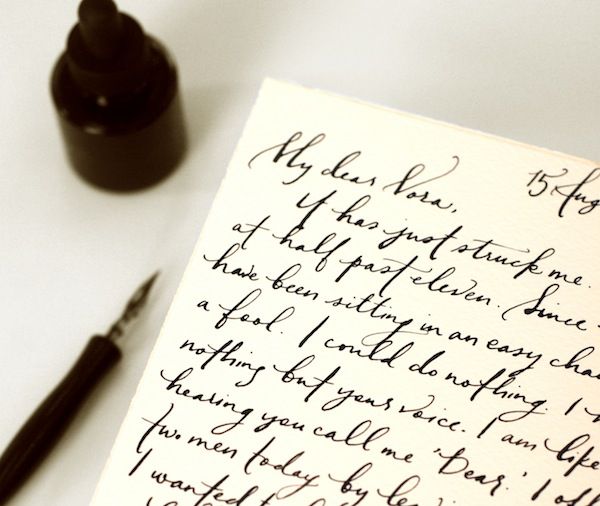 My dear Nora, 15 Aug
It has just struck me.
at half past eleven. Since
have been sitting in an easy chai
a fool. I could do nothing. I h
nothing but your voice. I am like
hearing you call me 'Dear.' I off
two men today by
I wanted